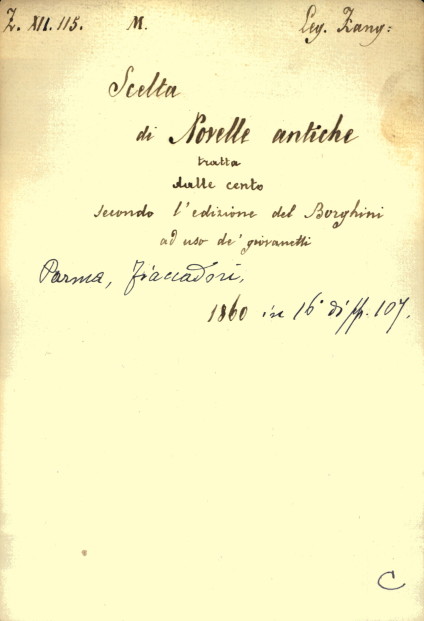 Z. XII. 115. M. Leg. Zang:
Scelta
di Novelle antiche
tratta
dalle cento
secondo l'edizione del Borghini
ad uso de' giovanetti
Parma, Fiaccadori,
1860 in 16° di pp. 107.
C